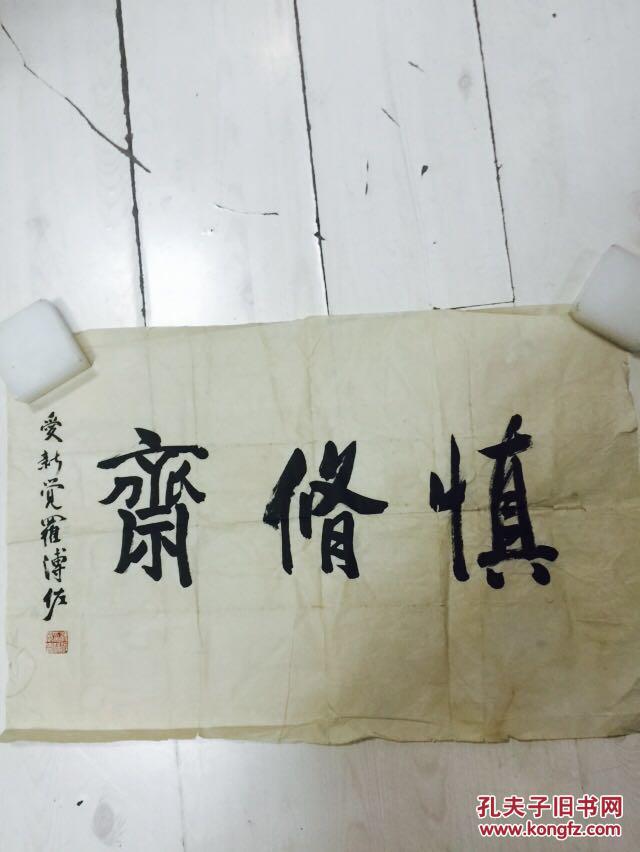 慎脩齋
爱新觉羅溥佐
孔夫子旧书网
www.kongfz.com